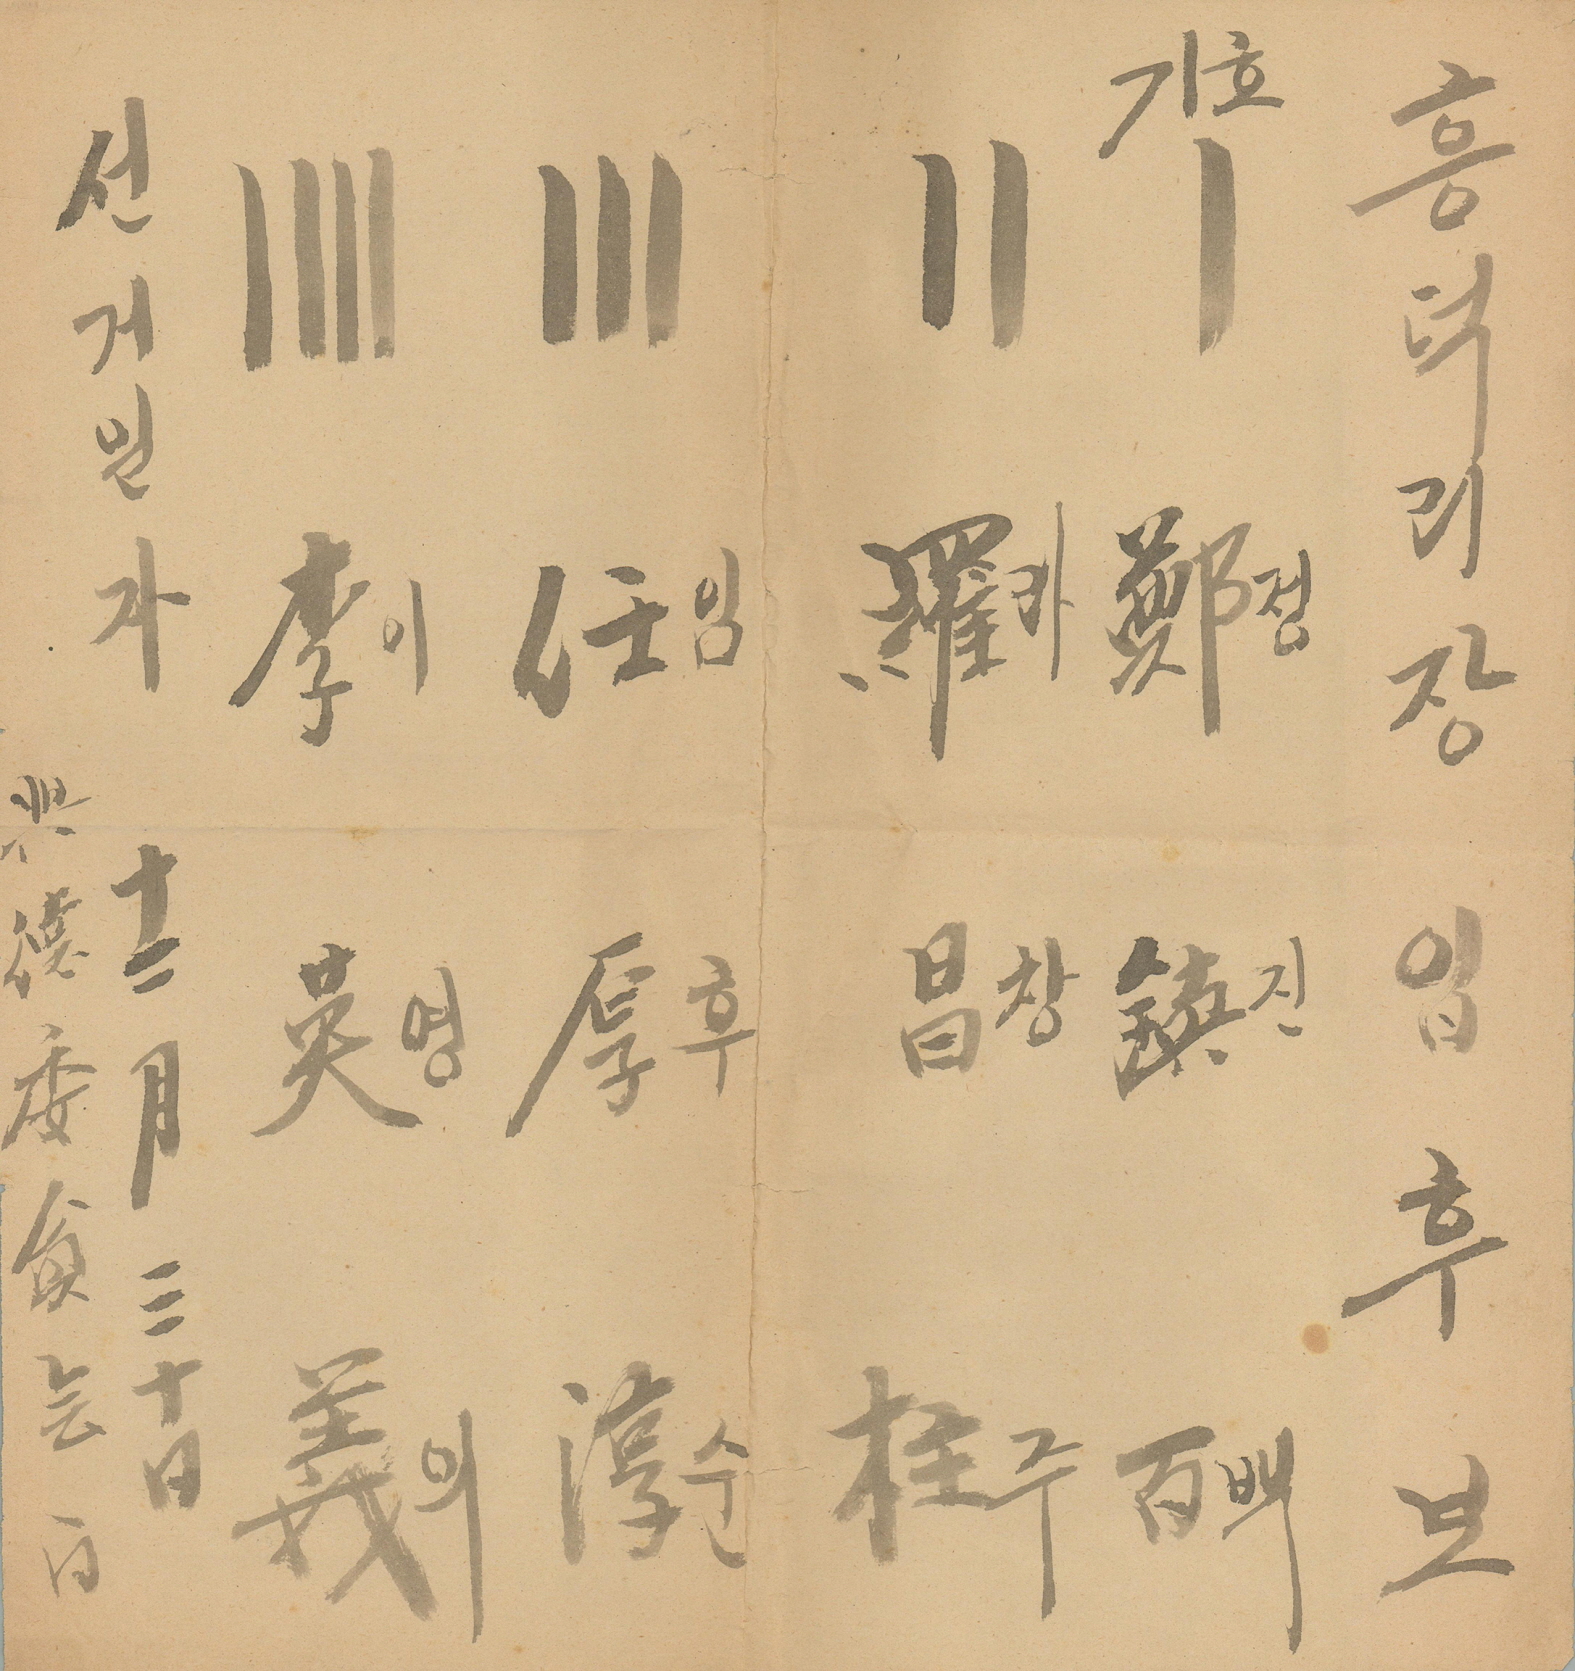 흥덕리장 입후보
기호 | 鄭정 鎭진 百백
|| 羅라 昌창 柱주
||| 任임 厚후 淳순
|||| 李이 英영 義의
선거일자 十二月三十日
興德委員会白